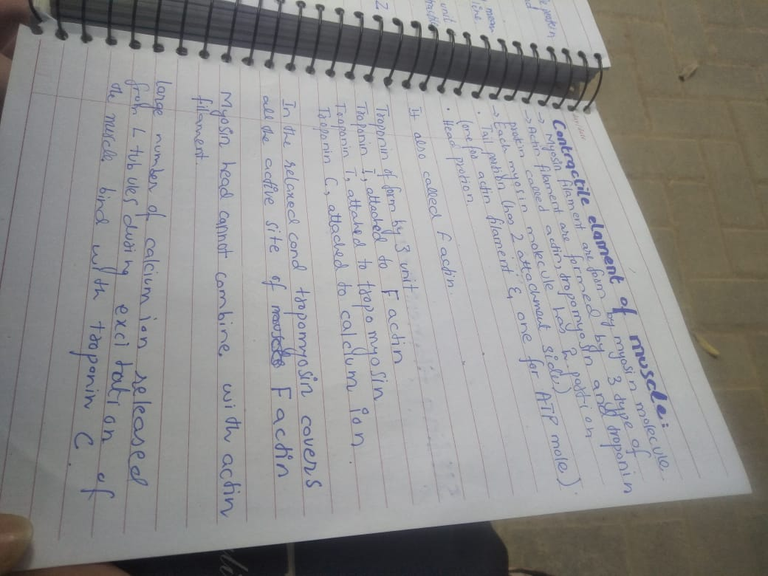 Contractile elament of muscle:
→ Myosin filament are form by myosin molecule.
→ Actin filament are formed by 3 type of
protein called actin, tropomyosin and troponin
→ Each myosin molecule has 2 portion
• Tail portion (has 2 attachment side)
(one for actin filament & one for ATP mole).
• Head portion
It also called F actin
Troponin of form by 3 unit
Troponin I, attached to F actin
Troponin T, attached to tropomyosin
Troponin C, attached to calcium ion
In the relaxed cond tropomyosin covers
all the active site of F actin
Myosin head cannot combine with actin
filament.
large number of calcium ion released
from L tubules during excitation of
the muscle bind with troponin C.